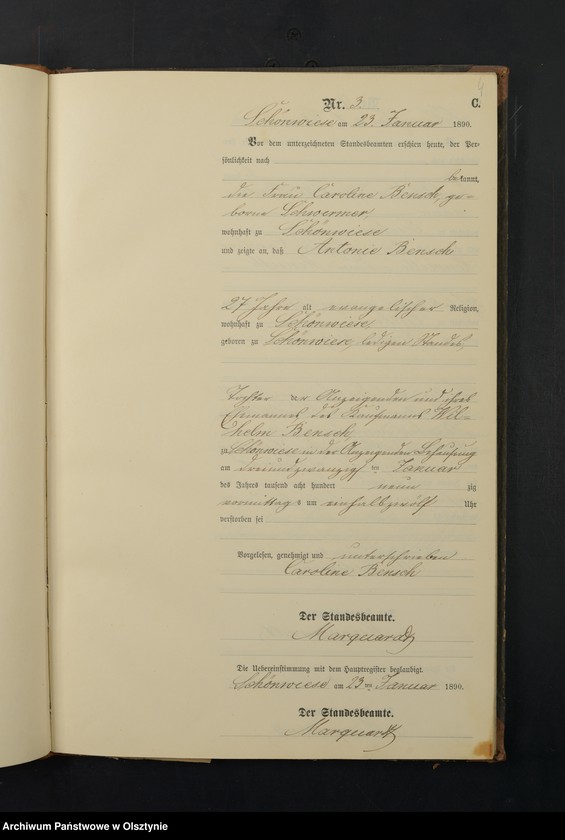 4
Nr. 3.
C.
Schönwiese am 23. Januar 1890.
Vor dem unterzeichneten Standesbeamten erschien heute, der Per-
sönlichkeit nach
bekannt,
die Frau Caroline Bensch, ge-
borne Schwermer,
wohnhaft zu Schönwiese
und zeigte an, daß Antonie Bensch
27 Jahre alt evangelischer Religion,
wohnhaft zu Schönwiese,
geboren zu Schönwiese, ledigen Standes,
Tochter der Anzeigenden und ihres
Ehemannes des Kaufmanns Wil-
helm Bensch
zu Schönwiese in der Anzeigenden Behausung
am dreiundzwanzigsten Januar
des Jahres tausend acht hundert neunzig
vormittags um einhalbzwölf Uhr
verstorben sei
Vorgelesen, genehmigt und unterschrieben
Caroline Bensch
Der Standesbeamte.
Marquardt
Die Uebereinstimmung mit dem Hauptregister beglaubigt.
Schönwiese am 23ten Januar 1890.
Der Standesbeamte.
Marquardt
Archiwum Państwowe w Olsztynie